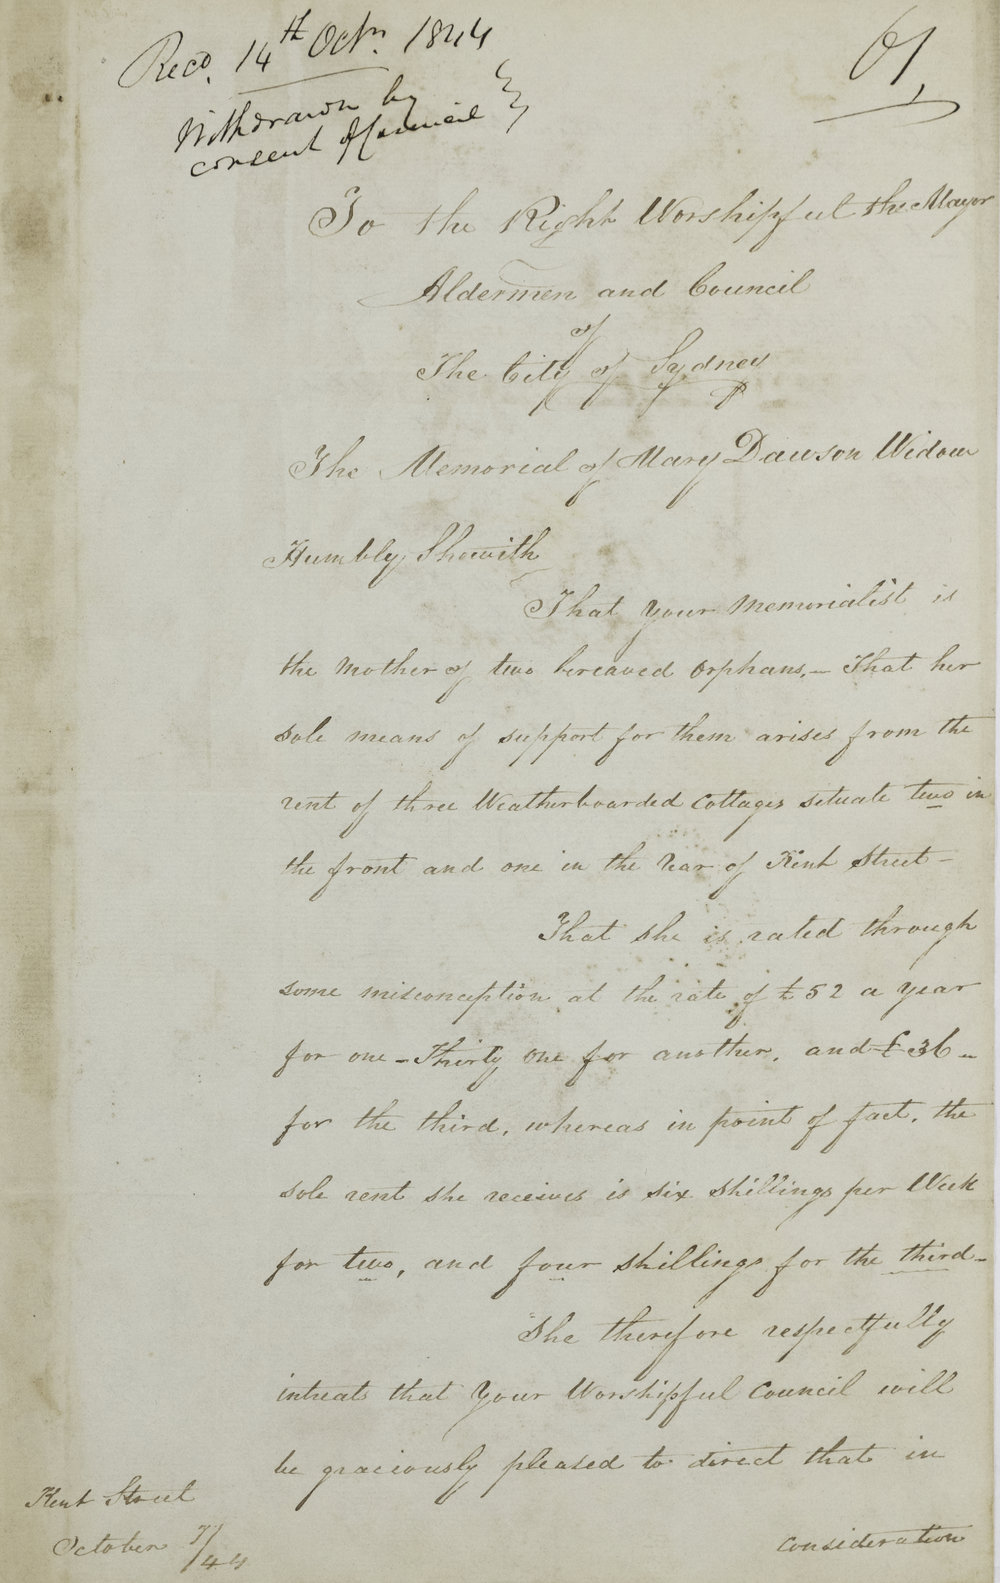 Recd. 14th Octr. 1844
Withdrawn by
consent of Council
61,
To the Right Worshipful the Mayor
Aldermen and Council
of
The City of Sydney
The Memorial of Mary Dawson Widow
Humbly Shewith
That your Memorialist is
the Mother of two bereaved orphans,— That her
sole means of support for them arises from the
rent of three Weatherboarded Cottages situate two in
the front and one in the rear of Kent Street—
That she is rated through
some misconception at the rate of £52 a year
for one – Thirty one for another, and £36 –
for the third, whereas in point of fact, the
sole rent she receives is six shillings per Week
for two, and four shillings for the third –
She therefore respectfully
intreats that your Worshipful Council will
be graciously pleased to direct that in
consideration
Kent Street
October 7/44